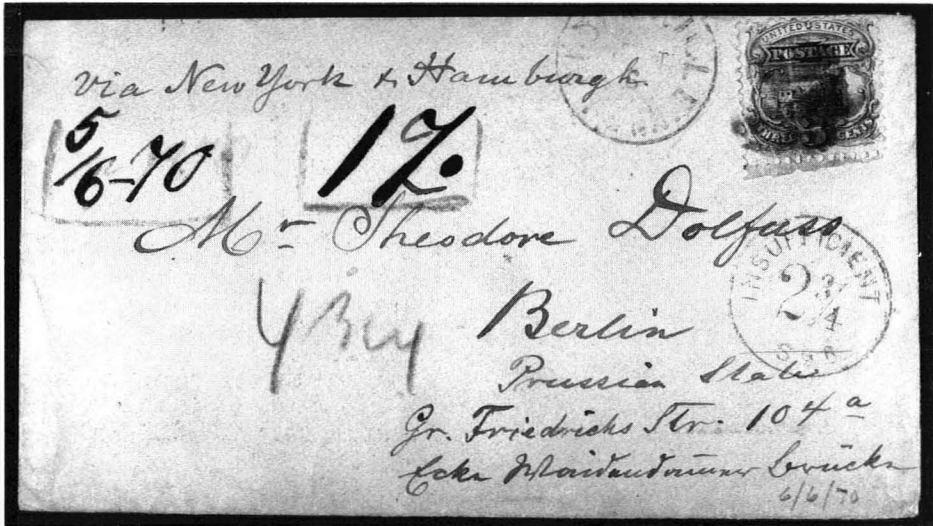 via New York & Hamburgh
5/6-70
17.
UNITED STATES
POSTAGE
3
CENTS
Mr Theodore Dolfuss
INSUFFICIENT
2 3/4
SGR
Berlin
Prussian State
Gr. Friedrichs Str. 104 a
Ecke Weidendammer brücke
6/6/70